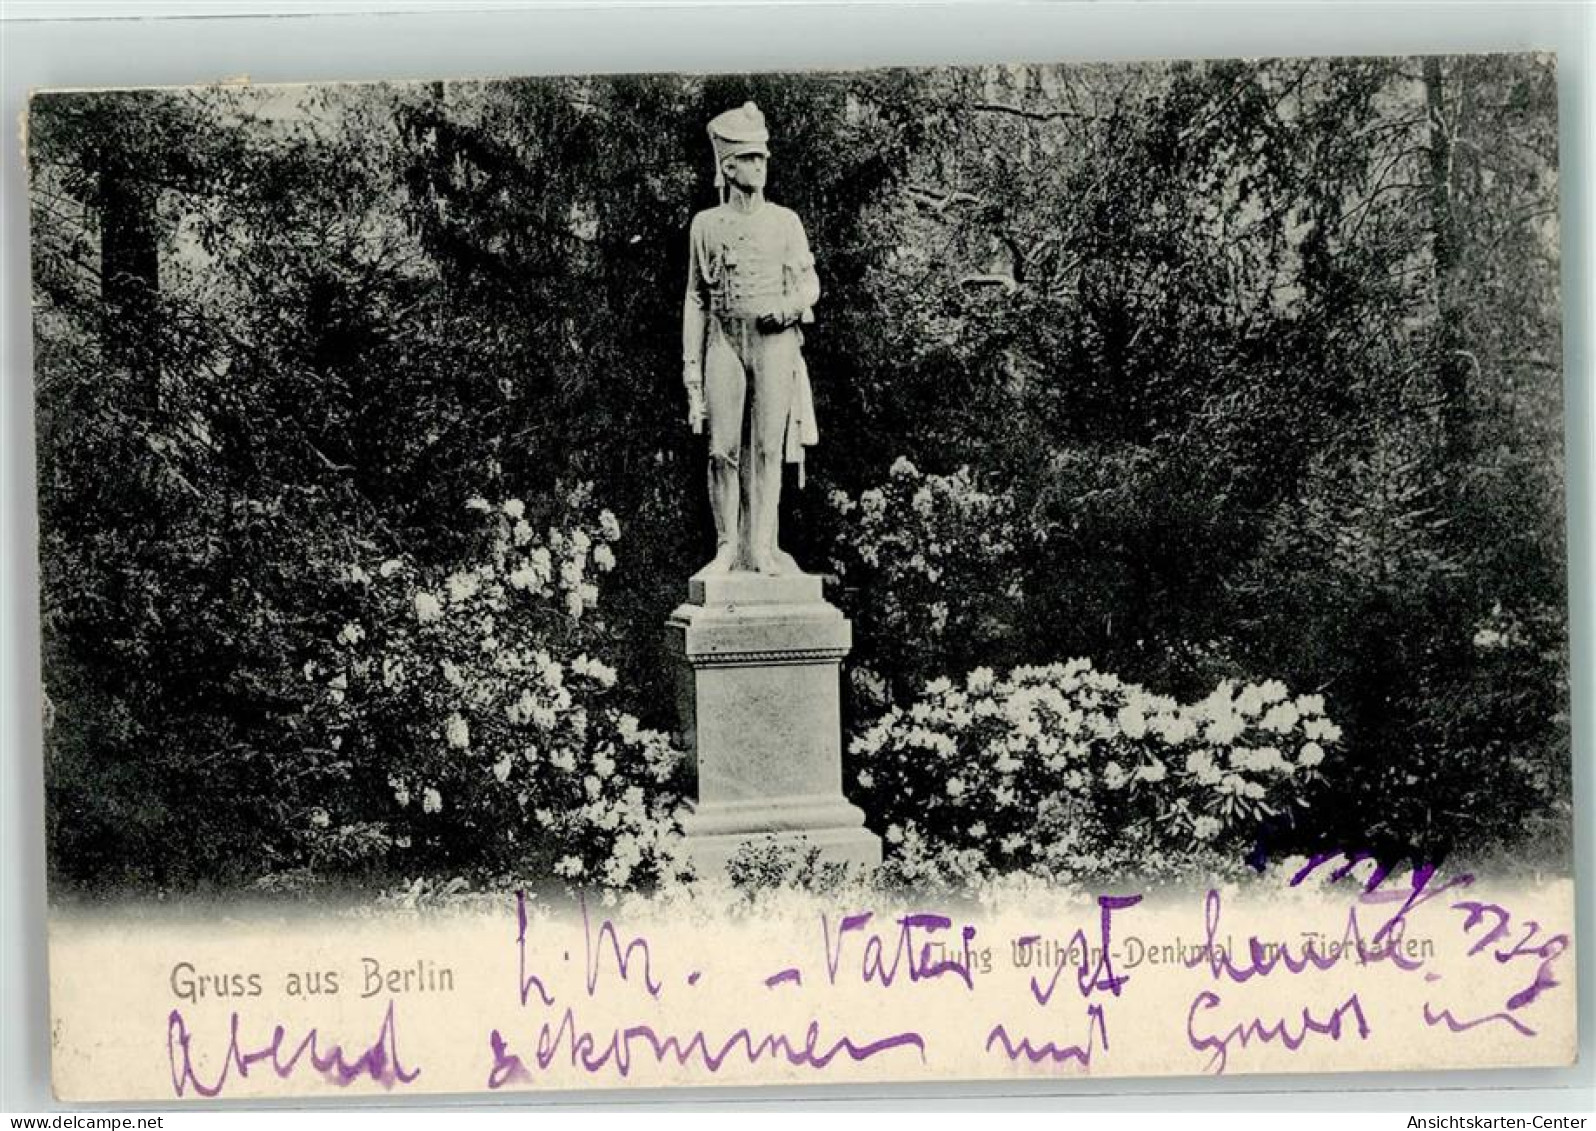 Gruss aus Berlin
Jung Wilhelm-Denkmal im Tiergarten
L. M. - Vater ist heute
Abend gekommen mit Gruss
oldthing.de
Ansichtskarten-Center